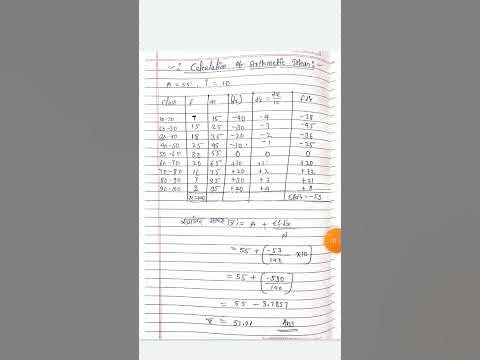 Calculation of Arithmetic Mean:
A = 55, i = 10
class f m (dx) d'x = dx/10 fd'x
10-20 7 15 -40 -4 -28
20-30 15 25 -30 -3 -45
30-40 18 35 -20 -2 -36
40-50 25 45 -10 -1 -25
50-60 30 55 0 0 0
60-70 20 65 +10 +1 +20
70-80 16 75 +20 +2 +32
80-90 7 85 +30 +3 +21
90-100 2 95 +40 +4 +8
N=140 Σfd'x = -53
माध्य (x̄) = A + Σfd'x / N
= 55 + (-53/140 × 10)
= 55 + (-530/140)
= 55 - 3.7857
x̄ = 51.21 Ans